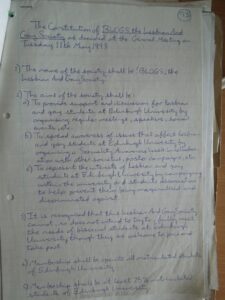 The Constitution of BLOGS, the Lesbian And
Gay Society as decided at the General Meeting on
Tuesday 11th May 1993
1) The name of the society shall be: BLOGS, the
Lesbian And Gay Society
2) The aims of the society shall be:
a) To provide support and discussion for lesbian
and gay students at Edinburgh University by
organising regular meetings, speakers, social
events, etc.
b) To spread awareness of issues that affect lesbian
and gay students at Edinburgh University by
organising a Awareness week in
ation with other societies, poster campaigns, etc.
c) To represent the interests of lesbian and gay
students at Edinburgh University by campaigning
within the university and students association
to help prevent them being marginalised and
discriminated against.
3) It is recognised that this Lesbian And Gay Society
cannot and does not intend to fully meet
the needs of bisexual students at Edinburgh
University though they are welcome to join and
take part.
4) Membership shall be open to all matriculated students
of Edinburgh University
5) Membership shall be at least 75% matriculated
students of Edinburgh University